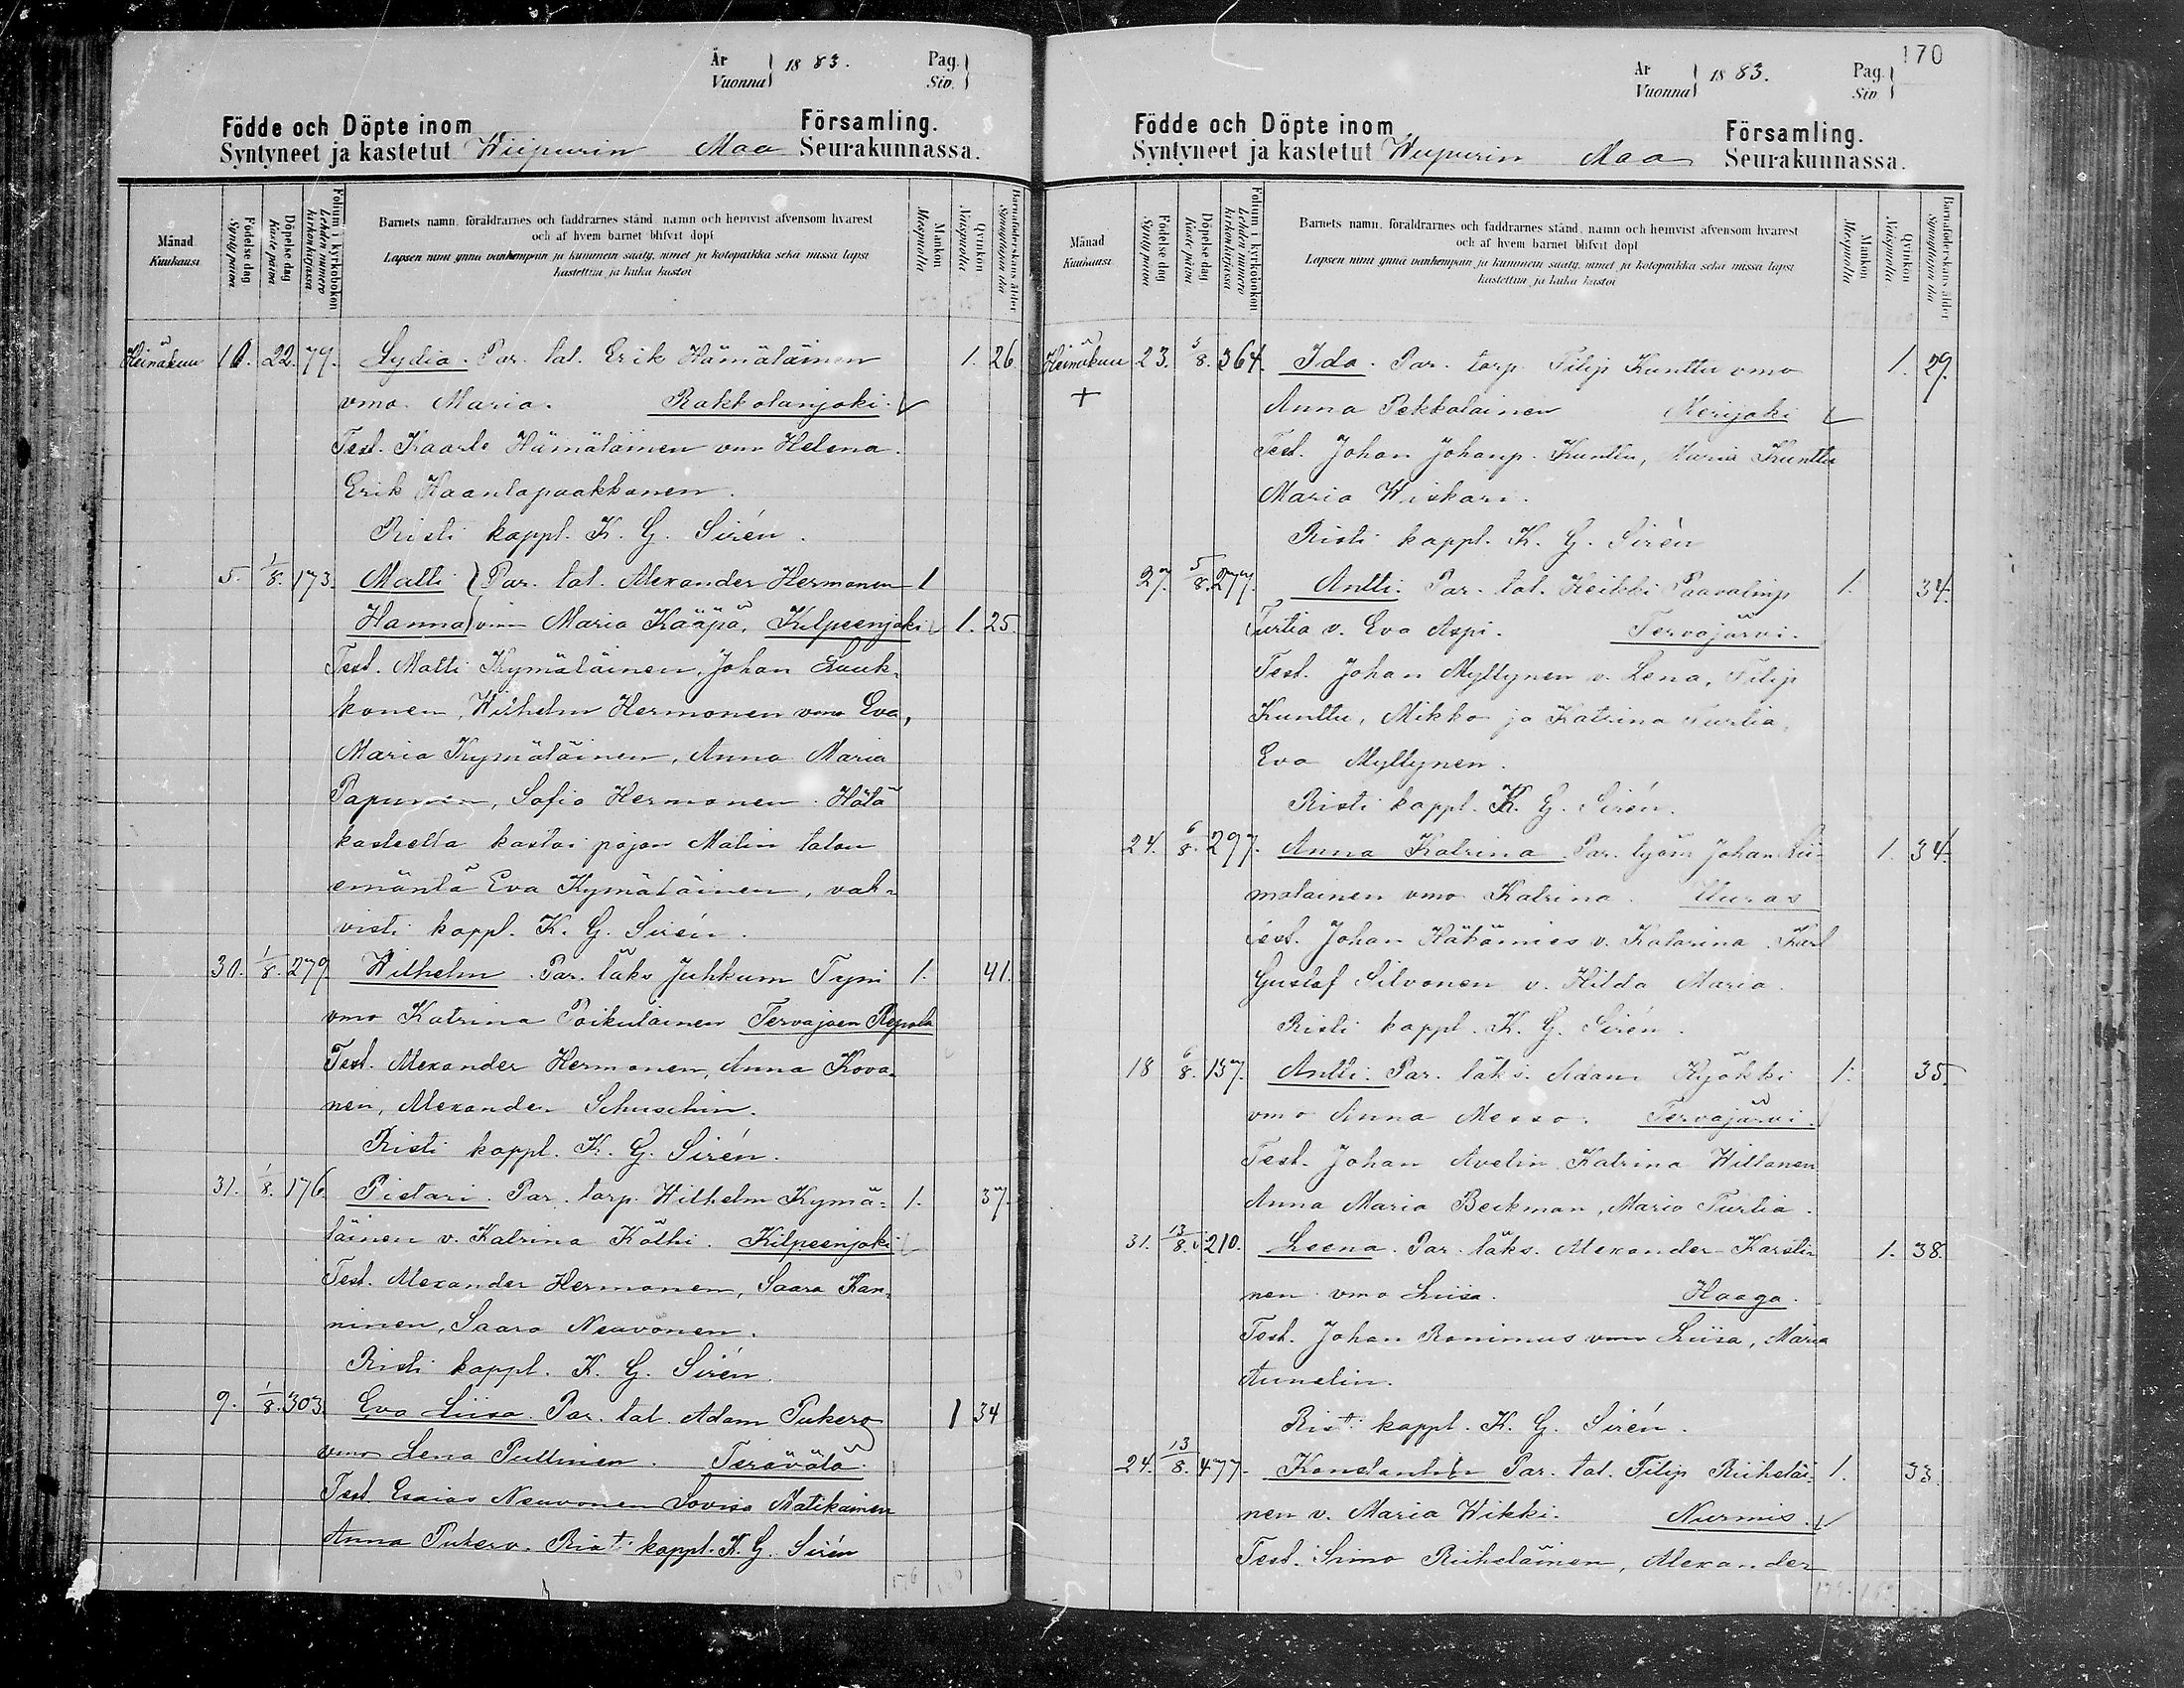 År
Vuonna } 18 83.
Pag.
Siv. }
Födde och Döpte inom Församling.
Syntyneet ja kastetut Wiipurin Maa Seurakunnassa.
Månad
Kuukausi
Födelse dag
Syntypäivä
Döpelse dag
Kastepäivä
Folium i kyrkoboken
Lehden numero kirkonkirjassa
Barnets namn, föräldrarnes och faddrarnes stånd, namn och hemvist äfvensom hvarest
och af hvem barnet blifvit döpt
Lapsen nimi ynnä vanhempain ja kummein sääty, nimet ja kotopaikka sekä missä lapsi
kastettiin ja kuka kastoi
Mankön
Miespuolia
Qvinkön
Naispuolia
Barnaföderskans ålder
Synnyttäjän ikä
Heinäkuu 10. 22. 79. Lydia. Par. tal. Erik Hämäläinen 1. 26
vmo Maria. Rakkolanjoki.
Test. Kaarle Hämäläinen vmo Helena.
Erik Haantapaakkanen.
Risti kappl. K. G. Sirén.
5. 1/8. 173. Matti } Par. tal. Alexander Hermonen 1
Hanna } vmo Maria Kääpä, Kilpeenjoki 1. 25.
Test. Matti Kymäläinen, Johan Lauk-
konen, Wilhelm Hermonen vmo Eva,
Maria Kymäläinen, Anna Maria
Papunen, Sofia Hermonen. Hätä
kasteella kastoi pojan Matin talon
emäntä Eva Kymäläinen, vah-
visti kappl. K. G. Sirén.
30. 1/8. 279. Wilhelm. Par. läks Juhkum Tyni 1. 41.
vmo Katrina Poikulainen Tervajoen Repola
Test. Alexander Hermonen, Anna Kova-
nen, Alexander Schuschin.
Risti kappl. K. G. Sirén.
31. 1/8. 176. Pietari. Par. torp. Wilhelm Kymä- 1. 37.
läinen v. Katrina Kälhi. Kilpeenjoki
Test. Alexander Hermonen, Saara Kan-
ninen, Saara Neuvonen.
Risti kappl. K. G. Sirén.
9. 1/8. 303. Eva Liisa. Par. tal. Adam Pukero 1 34
vmo Lena Pullinen. Terävälä.
Test. Esaias Neuvonen Lovisa Matikainen
Anna Pukero. Risti kappl. K. G. Sirén
170
År
Vuonna } 18 83.
Pag.
Siv. }
Födde och Döpte inom Församling.
Syntyneet ja kastetut Wiipurin Maa Seurakunnassa.
Månad
Kuukausi
Födelse dag
Syntypäivä
Döpelse dag
Kastepäivä
Folium i kyrkoboken
Lehden numero kirkonkirjassa
Barnets namn, föräldrarnes och faddrarnes stånd, namn och hemvist äfvensom hvarest
och af hvem barnet blifvit döpt
Lapsen nimi ynnä vanhempain ja kummein sääty, nimet ja kotopaikka sekä missä lapsi
kastettiin ja kuka kastoi
Mankön
Miespuolia
Qvinkön
Naispuolia
Barnaföderskans ålder
Synnyttäjän ikä
Heinäkuu 23. 5/8. 364. Ida. Par. torp. Filip Kunttu vmo 1. 29.
+ Anna Pekkalainen Nerijoki
Test. Johan Johanp. Kunttu, Maria Kunttu
Maria Wiskari.
Risti kappl. K. G. Sirén
27. 5/8. 277. Antti. Par. tal. Heikki Paavalinp. 1. 34.
Turtia v. Eva Aspi. Tervajärvi.
Test. Johan Myllynen v. Lena, Filip
Kunttu, Mikko ja Katrina Turtia,
Eva Myllynen.
Risti kappl. K. G. Sirén.
24. 6/8. 297. Anna Katrina. Par. työm Johan Lii- 1. 34.
matainen vmo Katrina. Uuras
Test. Johan Häkämies v. Katarina. Karl
Gustaf Silvonen v. Hilda Maria.
Risti kappl. K. G. Sirén.
18 6/8. 137. Antti. Par. läks. Adam Kyökki 1. 35.
vmo Anna Messo. Tervajärvi.
Test. Johan Avelin, Katrina Wiltanen
Anna Maria Beckman, Maria Turtia.
31. 13/8. 210. Leena. Par. läks. Alexander Karsti- 1. 38.
nen vmo Liisa. Haaga.
Test. Johan Ronimus vmo Liisa, Maria
Aunelin.
Risti kappl. K. G. Sirén.
24. 13/8. 477. Konstantin Par. tal. Filip Riiheläi- 1. 33.
nen v. Maria Wikki. Nurmis.
Test. Simo Riiheläinen, Alexander